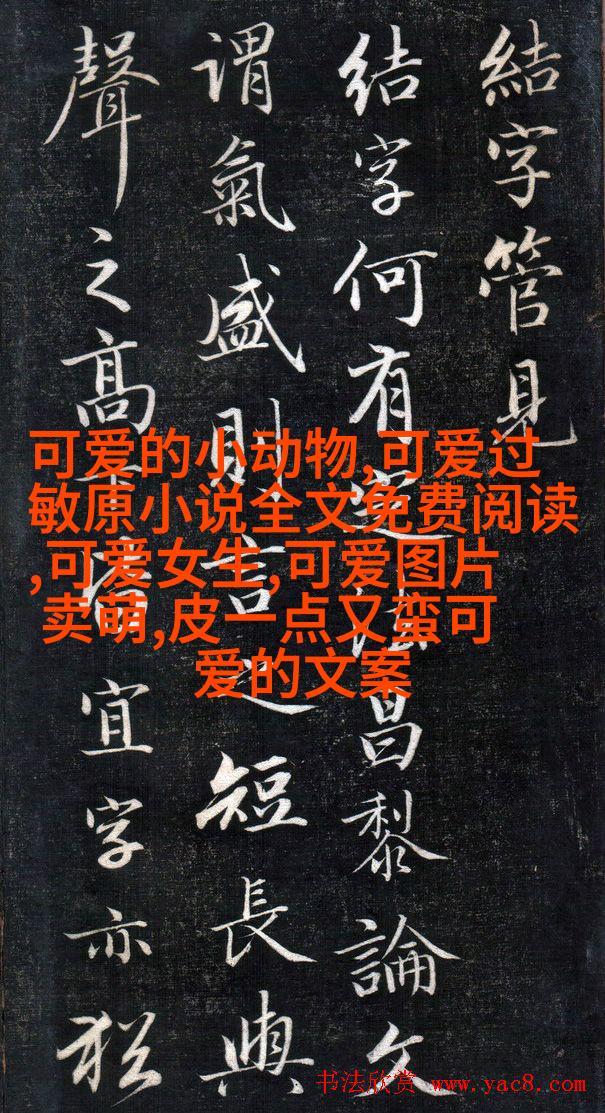 結字管見
結字何有法昌黎論文
謂氣盛則言之短長與
聲之高下皆宜字亦猶
可爱的小动物,可爱过
敏原小说全文免费阅读
,可爱女生,可爱图片
卖萌,皮一点又蛮可
爱的文案
书法欣赏 www.yac8.com